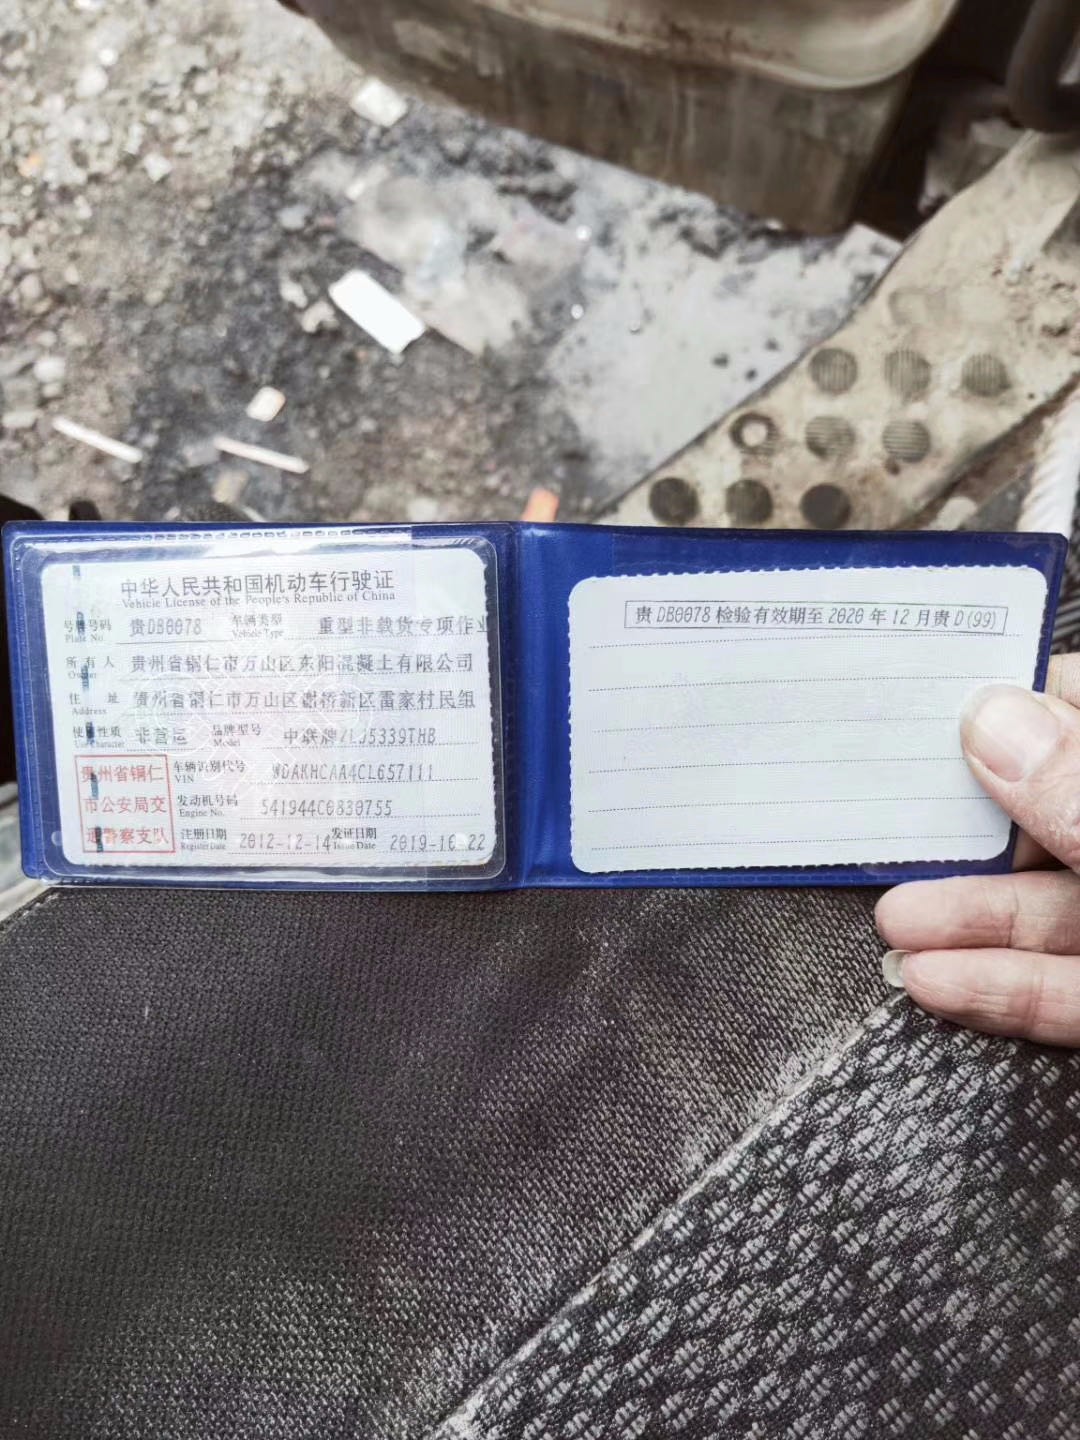 中华人民共和国机动车行驶证
Vehicle License of the People's Republic of China
号牌号码 贵DB0078 车辆类型 重型非载货专项作业
Plate No. Vehicle Type
所有人 贵州省铜仁市万山区东阳混凝土有限公司
Owner
住址 贵州省铜仁市万山区谢桥新区雷家村民组
Address
使用性质 非营运 品牌型号 中联牌ZLJ5339THB
Use Character Model
贵州省铜仁
市公安局交
通警察支队
车辆识别代号 WDAKHCAA4CL657111
VIN
发动机号码 541944C0830755
Engine No.
注册日期 2012-12-14 发证日期 2019-10-22
Register Date Issue Date
贵DB0078 检验有效期至 2020 年 12 月贵 D(99)